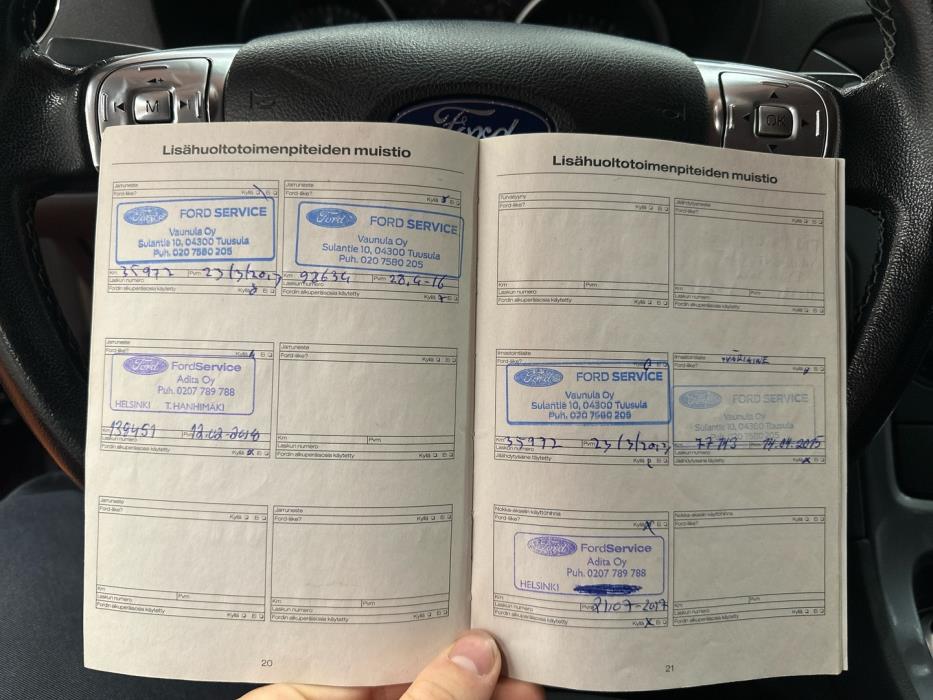 M
OK
Ford
Lisähuoltotoimenpiteiden muistio
Jarruneste
Ford-liike?
Kyllä Ei
FORD SERVICE
Vaunula Oy
Sulantie 10, 04300 Tuusula
Puh. 020 7580 205
Km 35972 Pvm 23/3/2013
Laskun numero
Fordin alkuperäisosia käytetty Kyllä Ei
Jarruneste
Ford-liike?
Kyllä Ei
Ford
FORD SERVICE
Vaunula Oy
Sulantie 10, 04300 Tuusula
Puh. 020 7580 205
Km 98634 Pvm 28.4-16
Laskun numero
Fordin alkuperäisosia käytetty Kyllä Ei
Jarruneste
Ford-liike? Kyllä Ei
Ford
FordService
Adita Oy
Puh. 0207 789 788
HELSINKI T. HANHIMÄKI
Km 139451 Pvm 12.02-2018
Laskun numero
Fordin alkuperäisosia käytetty Kyllä Ei
Jarruneste
Ford-liike?
Kyllä Ei
Km Pvm
Laskun numero
Fordin alkuperäisosia käytetty Kyllä Ei
Jarruneste
Ford-liike?
Kyllä Ei
Km Pvm
Laskun numero
Fordin alkuperäisosia käytetty Kyllä Ei
Jarruneste
Ford-liike?
Kyllä Ei
Km Pvm
Laskun numero
Fordin alkuperäisosia käytetty Kyllä Ei
20
Lisähuoltotoimenpiteiden muistio
Turvatyyny
Ford-liike?
Kyllä Ei
Km Pvm
Laskun numero
Fordin alkuperäisosia käytetty Kyllä Ei
Jäähdytysneste
Ford-liike?
Kyllä Ei
Km Pvm
Laskun numero
Fordin alkuperäisosia käytetty Kyllä Ei
Ilmastointilaite
Ford-liike?
Kyllä Ei
Ford
FORD SERVICE
Vaunula Oy
Sulantie 10, 04300 Tuusula
Puh. 020 7580 205
Km 35972 Pvm 23/3/2013
Laskun numero
Jäähdytysaine täytetty Kyllä Ei
Ilmastointilaite
Ford-liike?
Kyllä Ei
Ford
FORD SERVICE
Vaunula Oy
Sulantie 10, 04300 Tuusula
Km 77743 Pvm 14.04.2015
Laskun numero
Jäähdytysaine täytetty Kyllä Ei
Nokka-akselin käyttöhihna
Ford-liike?
Kyllä Ei
Ford
FordService
Adita Oy
Puh. 0207 789 788
HELSINKI
Km Pvm 21.07-2017
Laskun numero
Fordin alkuperäisosia käytetty Kyllä Ei
Nokka-akselin käyttöhihna
Ford-liike?
Kyllä Ei
Km Pvm
Laskun numero
Fordin alkuperäisosia käytetty Kyllä Ei
21